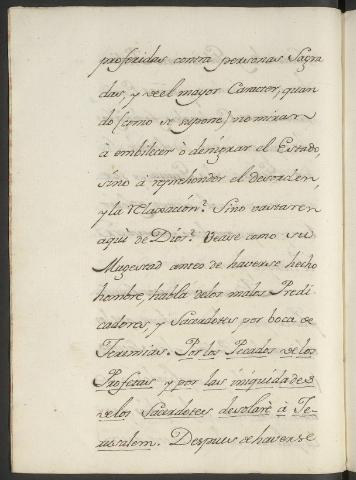 proferidas contra personas Sagra
das, y de el mayor Caracter, quan
do (como se supone) no miran
à embilecer ò denigrar el Estado,
sino à reprehender el desorden,
y la relaxación? Sino bastaren
aqui de Dios? Vease como su
Magestad antes de haverse hecho
hombre, habla delos malos Predi
cadores, y Sacerdotes por boca de
Jeremias. Por los Pecados de los
Profetas, y por las iniquidades
de los Sacerdotes desolarè à Je-
rusalem. Despues de haverse